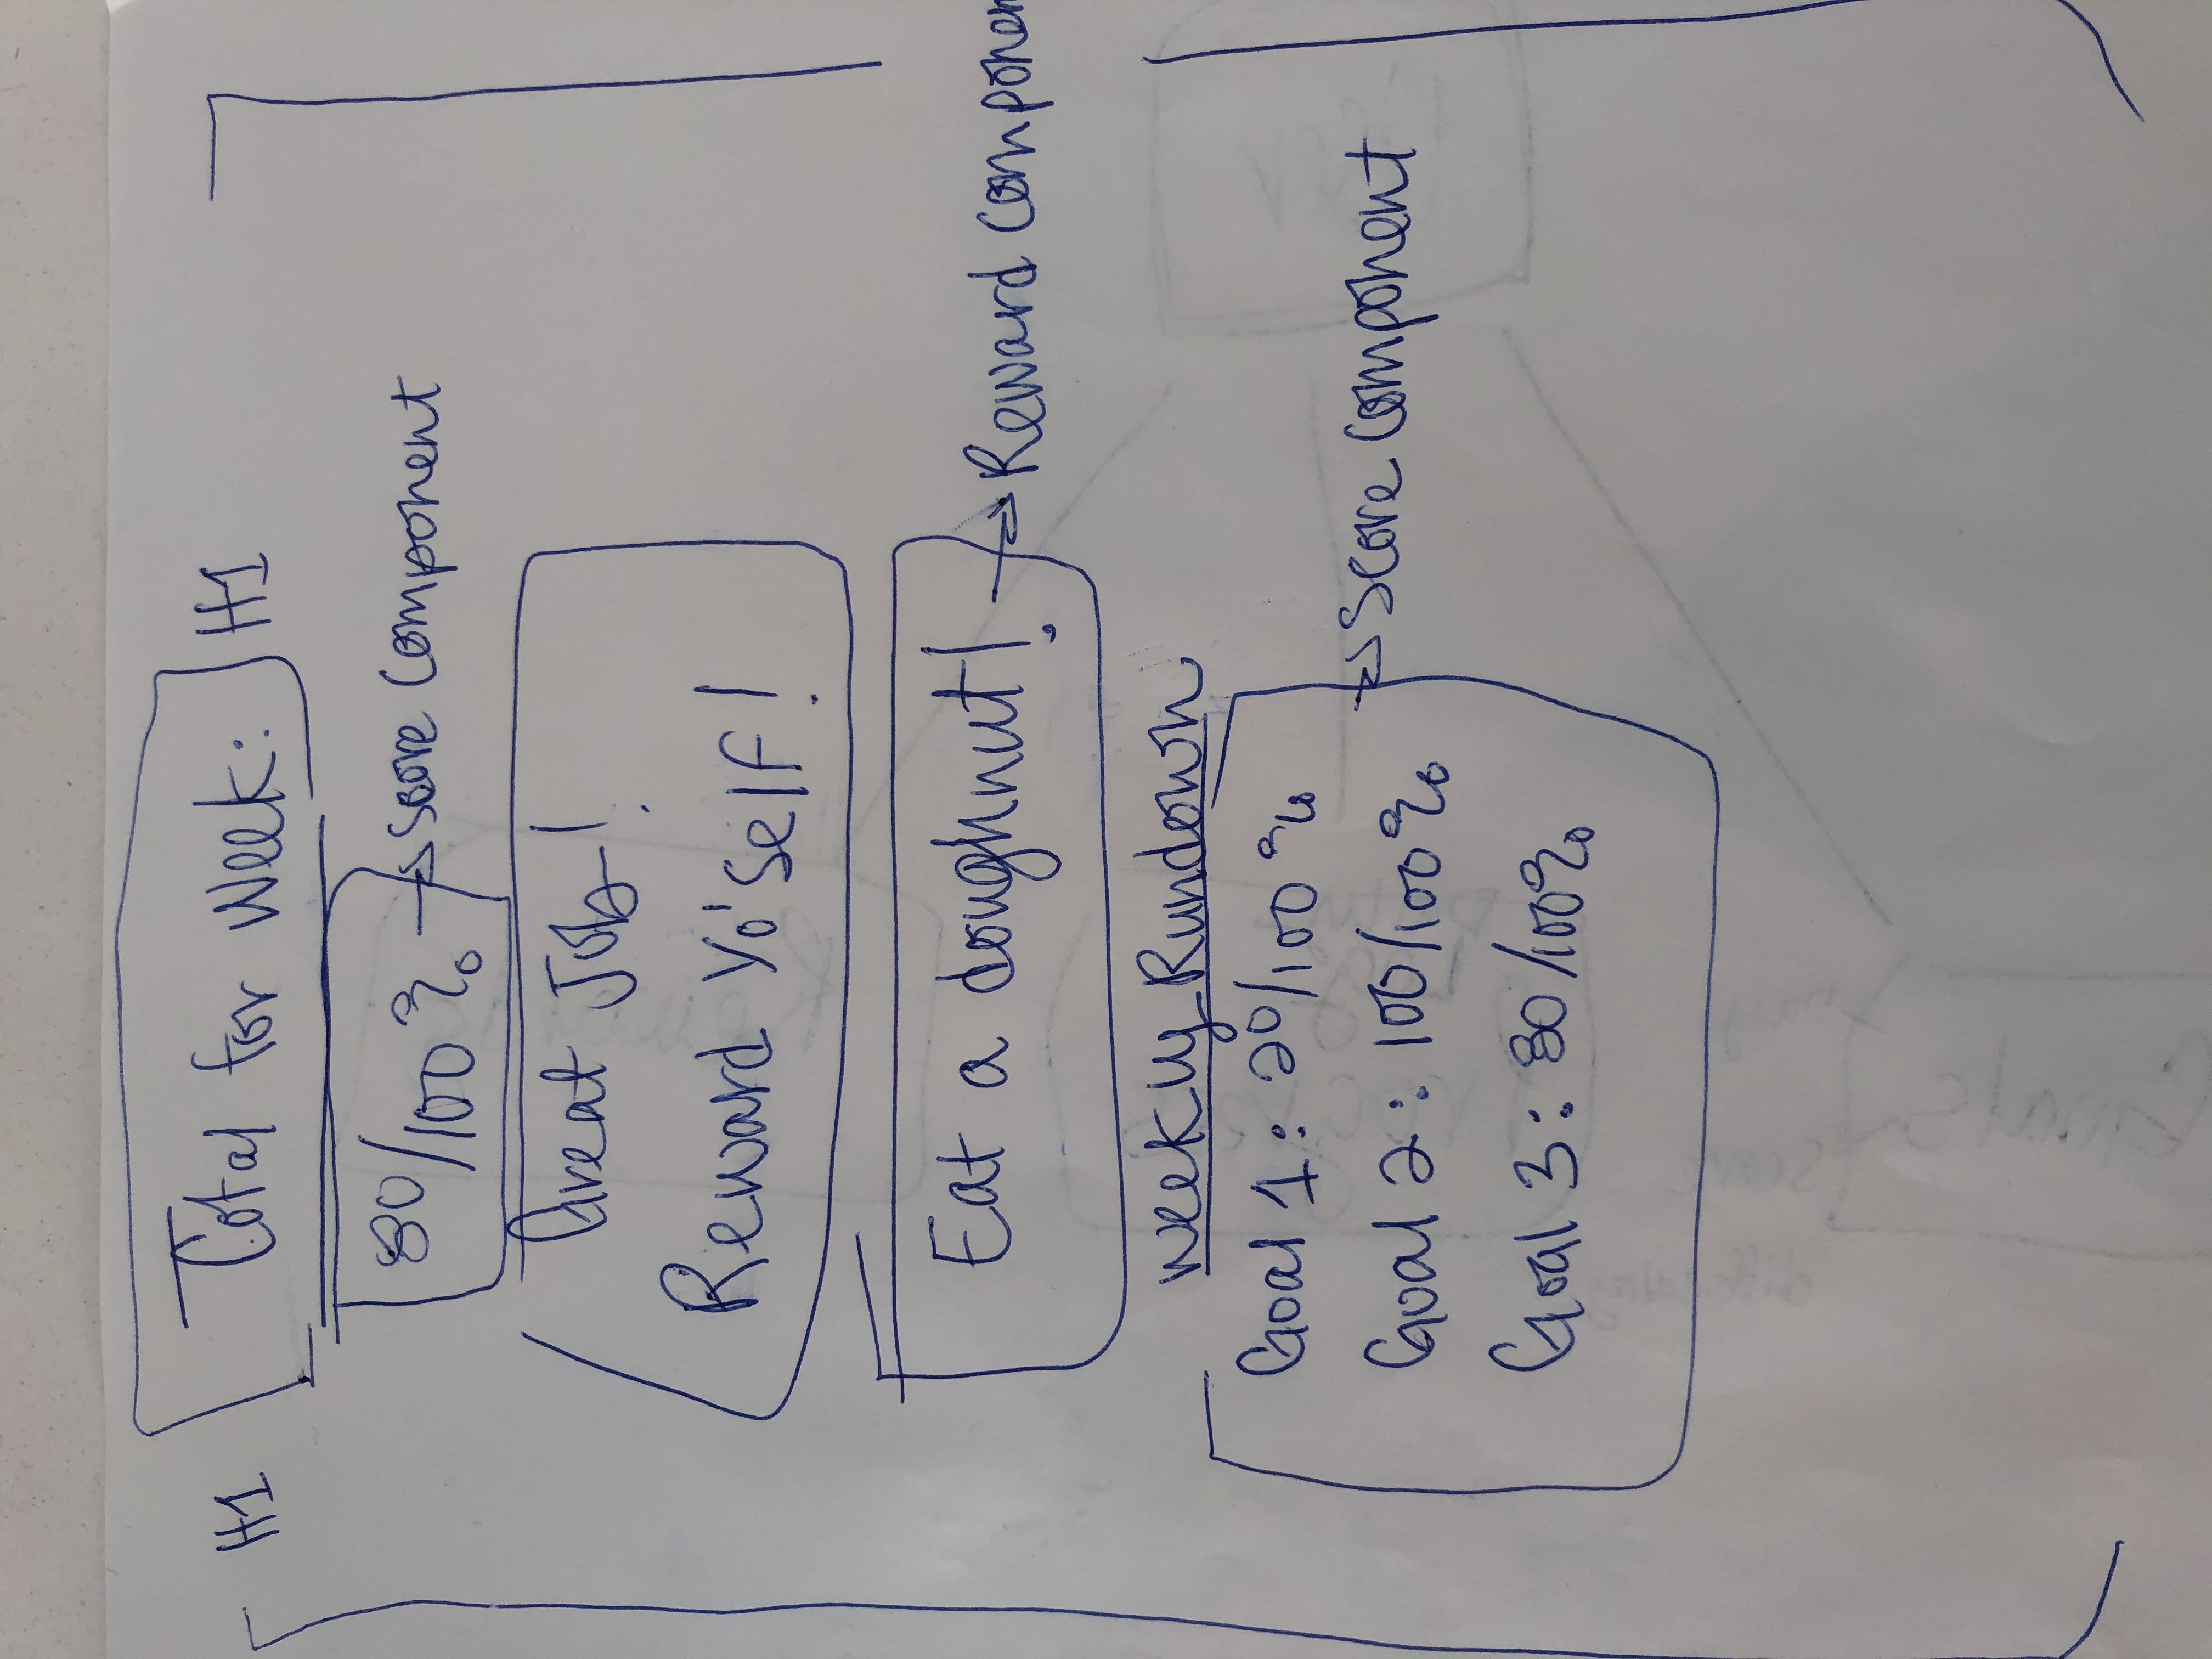 H1 Total for Week: H1
80/100% → Score Component
Great Job!
Reward Yo'Self!
Eat a doughnut! → Reward Componen
Weekly Rundown
Goal 1: 20/100%
Goal 2: 100/100%
→ Score Component
Goal 3: 80/100%